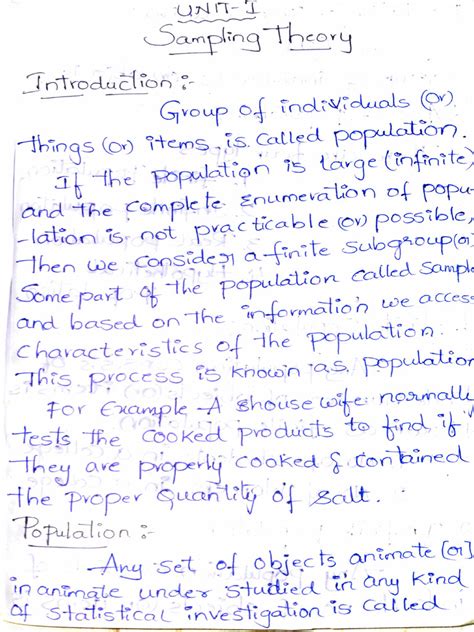 UNIT-I
Sampling Theory
Introduction :-
Group of individuals (or)
things (or) items is called population.
If the population is large (infinite)
and the complete enumeration of popu-
-lation is not practicable (or) possible,
Then we consider a finite subgroup (or
Some part of the population called sample
and based on the information we access
characteristics of the population.
This process is known as population
For Example - A shouse wife normall
tests the cooked products to find if
they are properly cooked & contained
the proper Quantity of salt.
Population :-
Any set of objects animate [or]
inanimate under studied in any kind
of statistical investigation is called